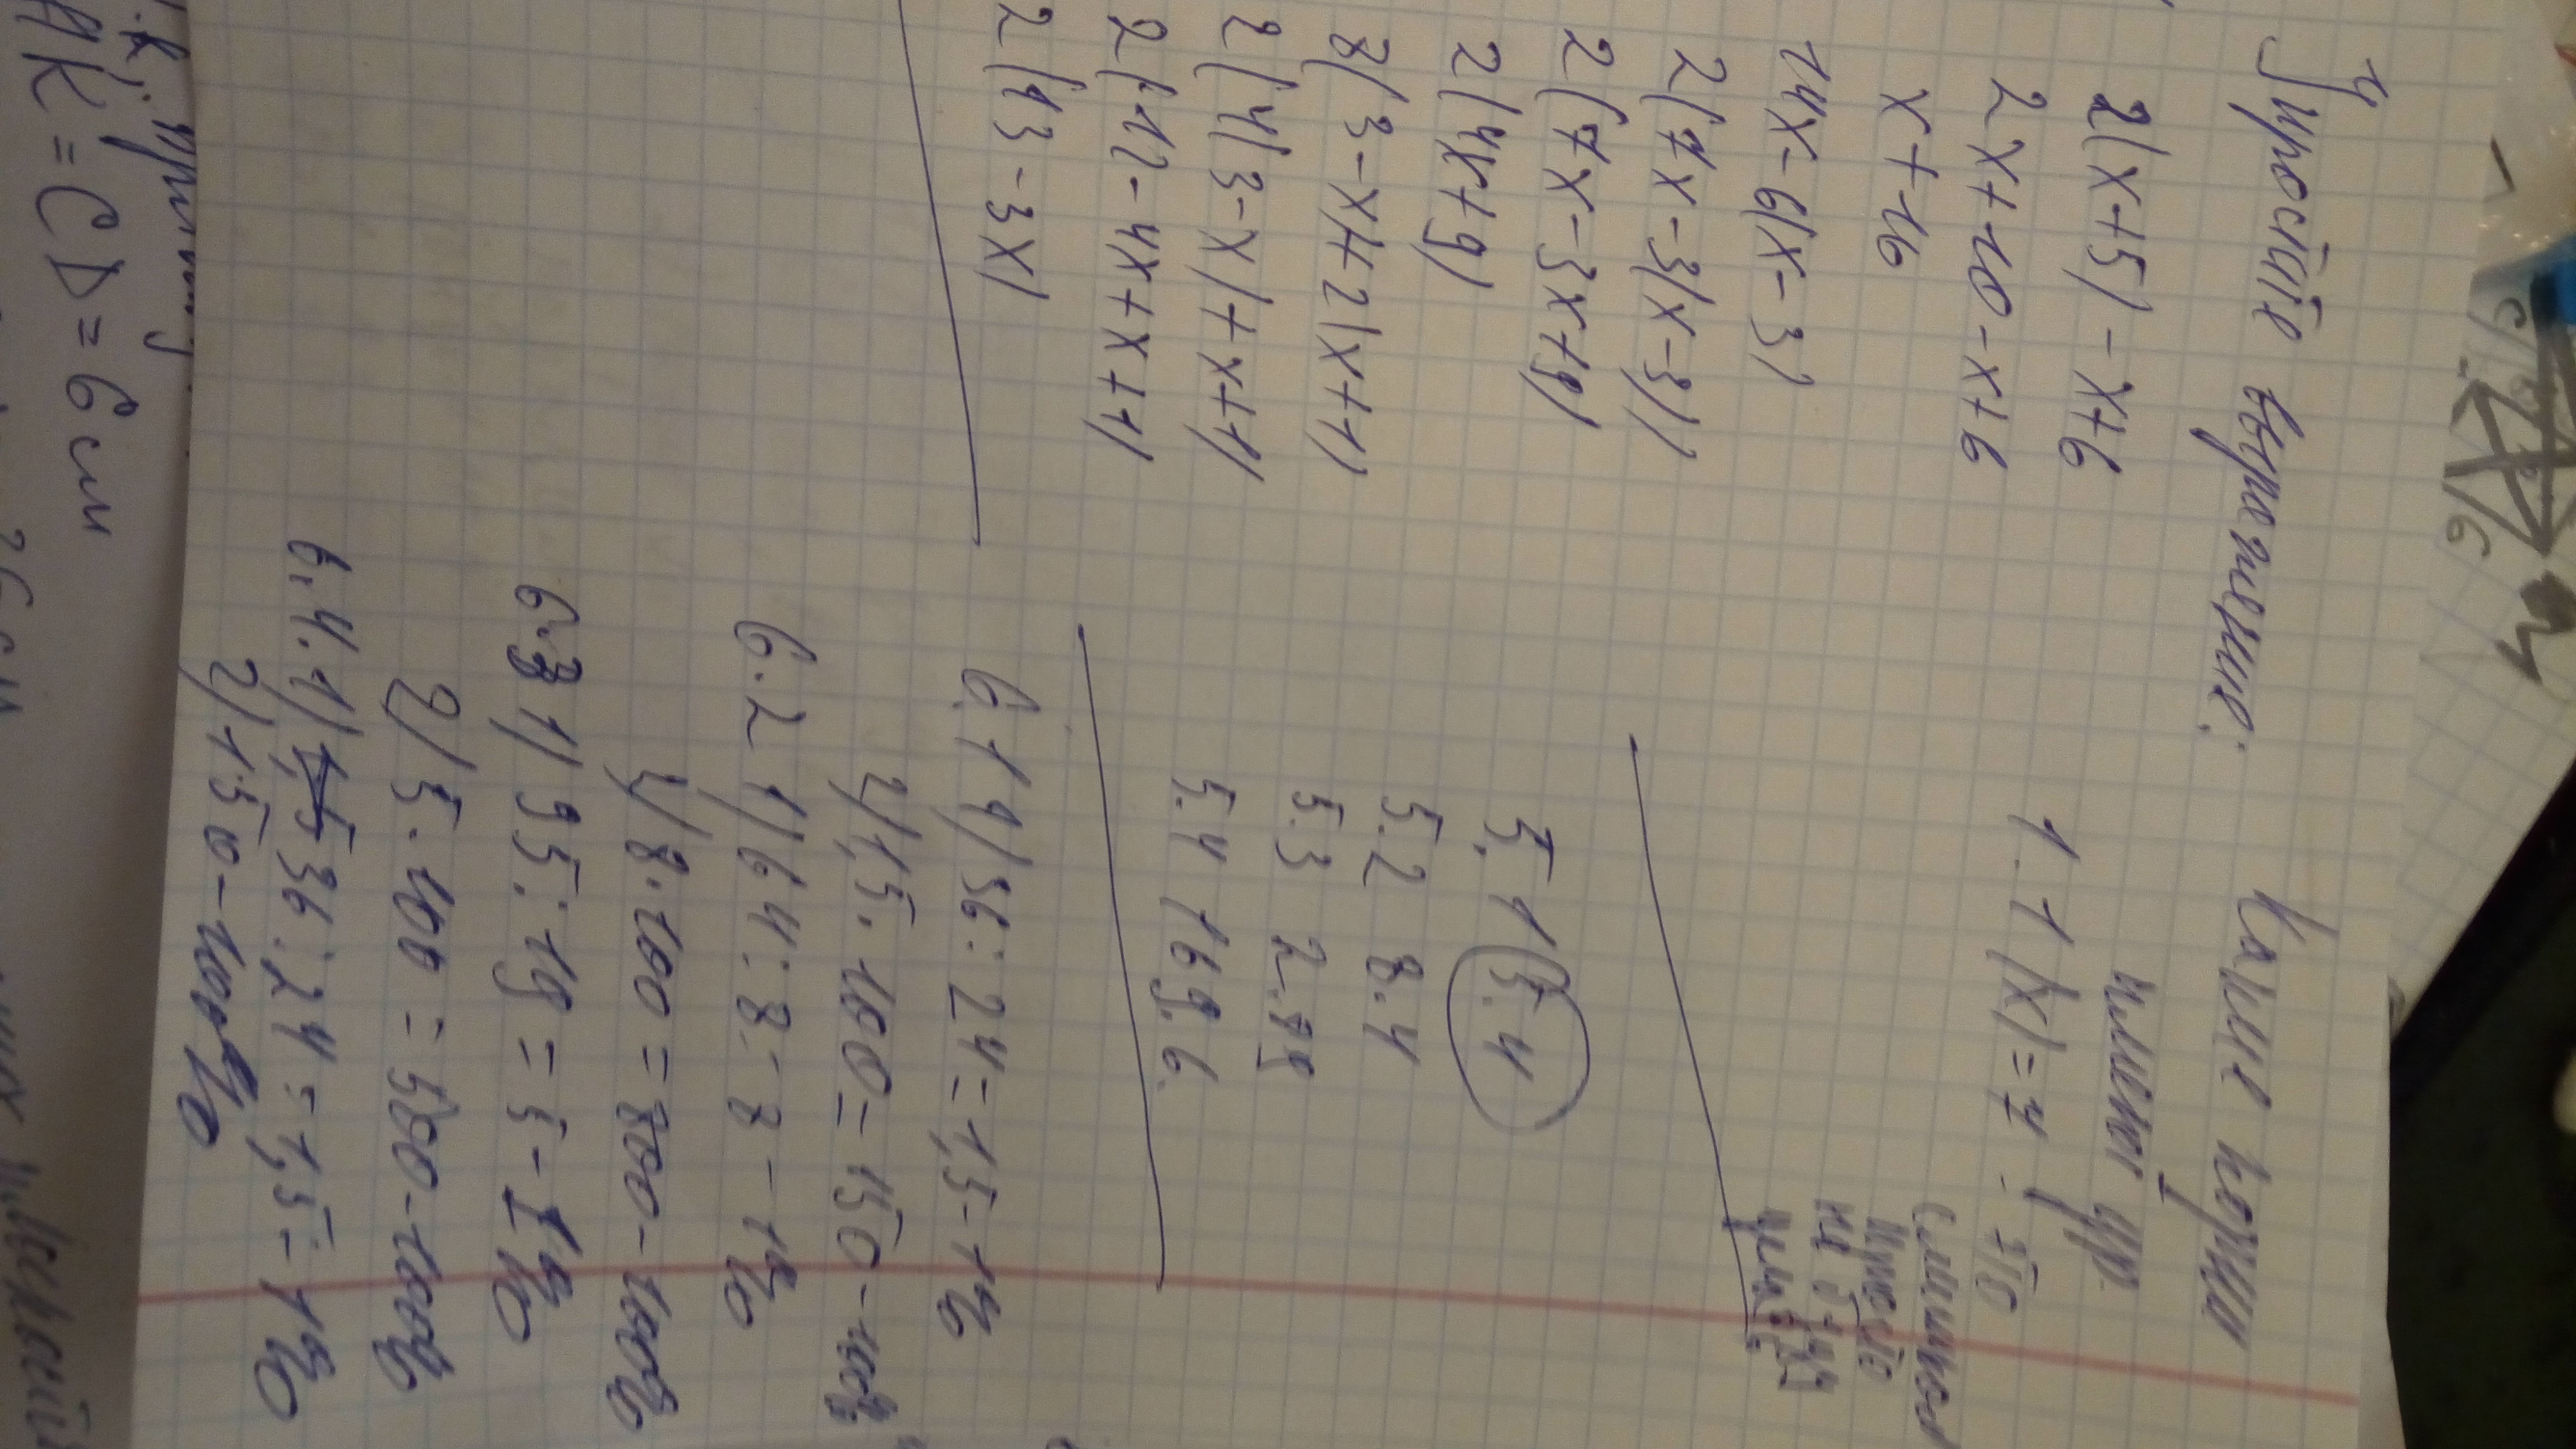 Упростите выражение:
2(x+5)-x+6
2x+10-x+6
x+16
14x-6(x-3)
2(7x-3(x-3))
2(7x-3x+9)
2(4x+9)
8(3-x)+2(x+1)
2(4(3-x)+x+1)
2(12-4x+x+1)
2(13-3x)
Какие корни
имеет ур.
1.1 |x|=7. это
слишком
просто
не буду
5.1 (5.4
5.2 8.4
5.3 2.89
5.4 169.6.
6.1 1)36:24=1,5-1%
2)1,5·100=150-100%
6.2 1)64:8=8-1%
2)8·100=800-100%
6.3 1)95:19=5-1%
2)5·100=500-100%
6.4.1)1,5 36:24=1,5=1%
2)150-100%
AK=CD=6см